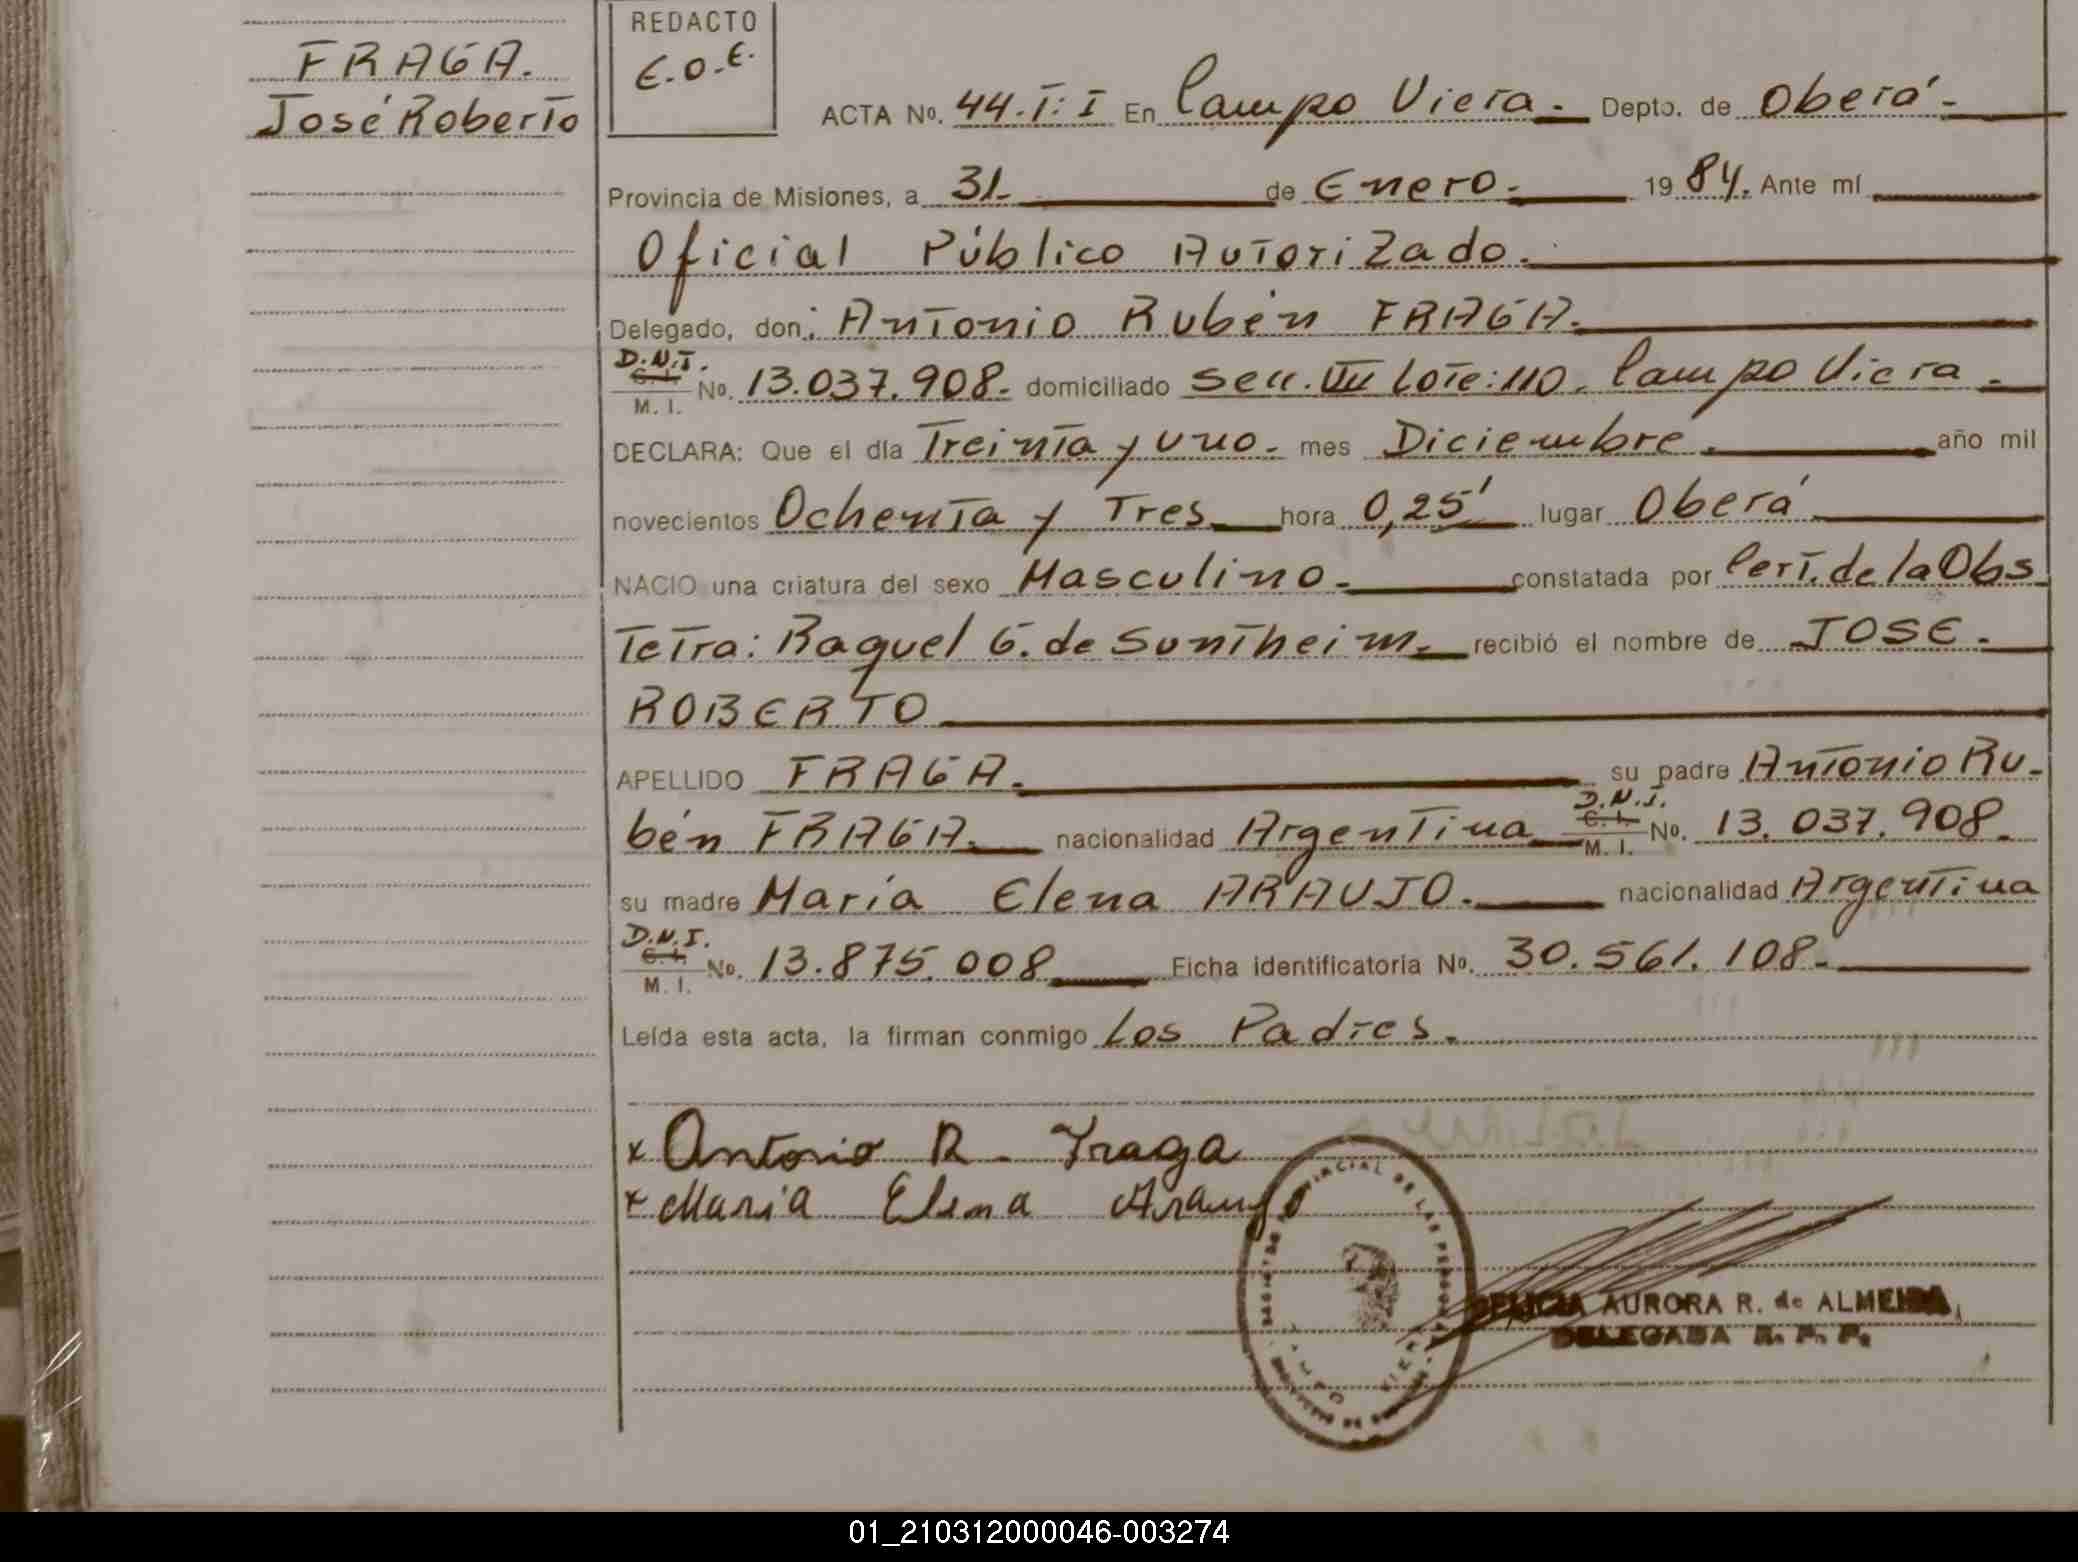 FRAGA.
José Roberto
REDACTO
E.O.E.
ACTA No. 44.T:I En Campo Viera. Depto. de Oberá.
Provincia de Misiones, a 31 de Enero. 1984. Ante mí
Oficial Público Autorizado.
Delegado, don: Antonio Rubén FRAGA.
D.N.I.
C. I.
M. I.
No. 13.037.908. domiciliado Secc. VIII Lote: 110. Campo Viera.
DECLARA: Que el día Treinta y uno. mes Diciembre. año mil
novecientos Ochenta y Tres hora 0,25' lugar Oberá
NACIO una criatura del sexo Masculino. constatada por Cert. de la Obs
Tetra: Raquel G. de Suntheim. recibió el nombre de JOSE.
ROBERTO
APELLIDO FRAGA. su padre Antonio Ru-
bén FRAGA. nacionalidad Argentina D.N.I. C. I. M. I. No. 13.037.908.
su madre María Elena ARAUJO. nacionalidad Argentina
D.N.I.
C. I.
M. I.
No. 13.875.008 Ficha identificatoria No. 30.561.108.
Leída esta acta, la firman conmigo Los Padres.
x Antonio R. Fraga
x Maria Elena Araujo
AURORA R. de ALMEIDA
DELEGADA R. P. P.
01_210312000046-003274